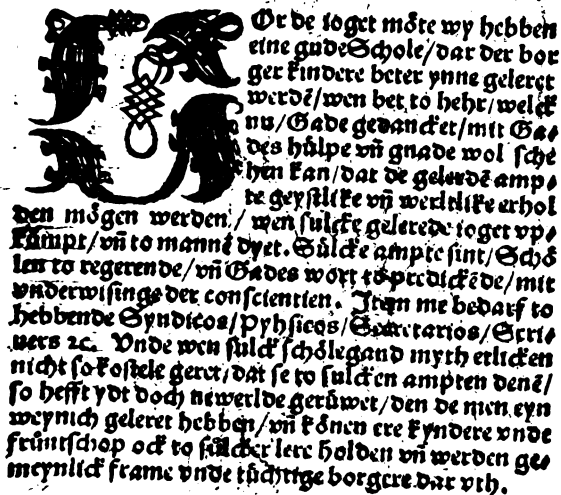 FOr de ioget mo̊te wy hebben
eine gude Schole/dar der bor
ger kindere beter ynne geleret
werdē/wen bet to hehr/welck
nu/Gade gedancket/mit Ga⸗
des hülpe vn̄ gnade wol sche
hen kan/dat de gelerdē amp⸗
te geystlike vn̄ werltlike erhol
den mo̊gen werden/wen sulcke gelerede ioget vp⸗
kůmpt/vn̄ to manne dyet. Sůlcke ampte sint/Scho̊
len to regerende/vn̄ Gades wort to predickēde/mit
vnderwisinge der conscientien. Item me bedarf to
hebbende Syndicos/Pyhsicos/Secretarios/Scri⸗
uers ꝛc. Vnde wen sulck scho̊legand myth etlicken
nicht so kostele geret/dat se to sulcken ampten denē/
so hefft ydt doch newerlde gerůwet/den de men eyn
weynich geleret hebben/vn̄ ko̊nen ere kyndere vnde
frůntschop ock to sůlcker lere holden vn̄ werden ge⸗
meynlick frame vnde tůchtige borgere dar vth.